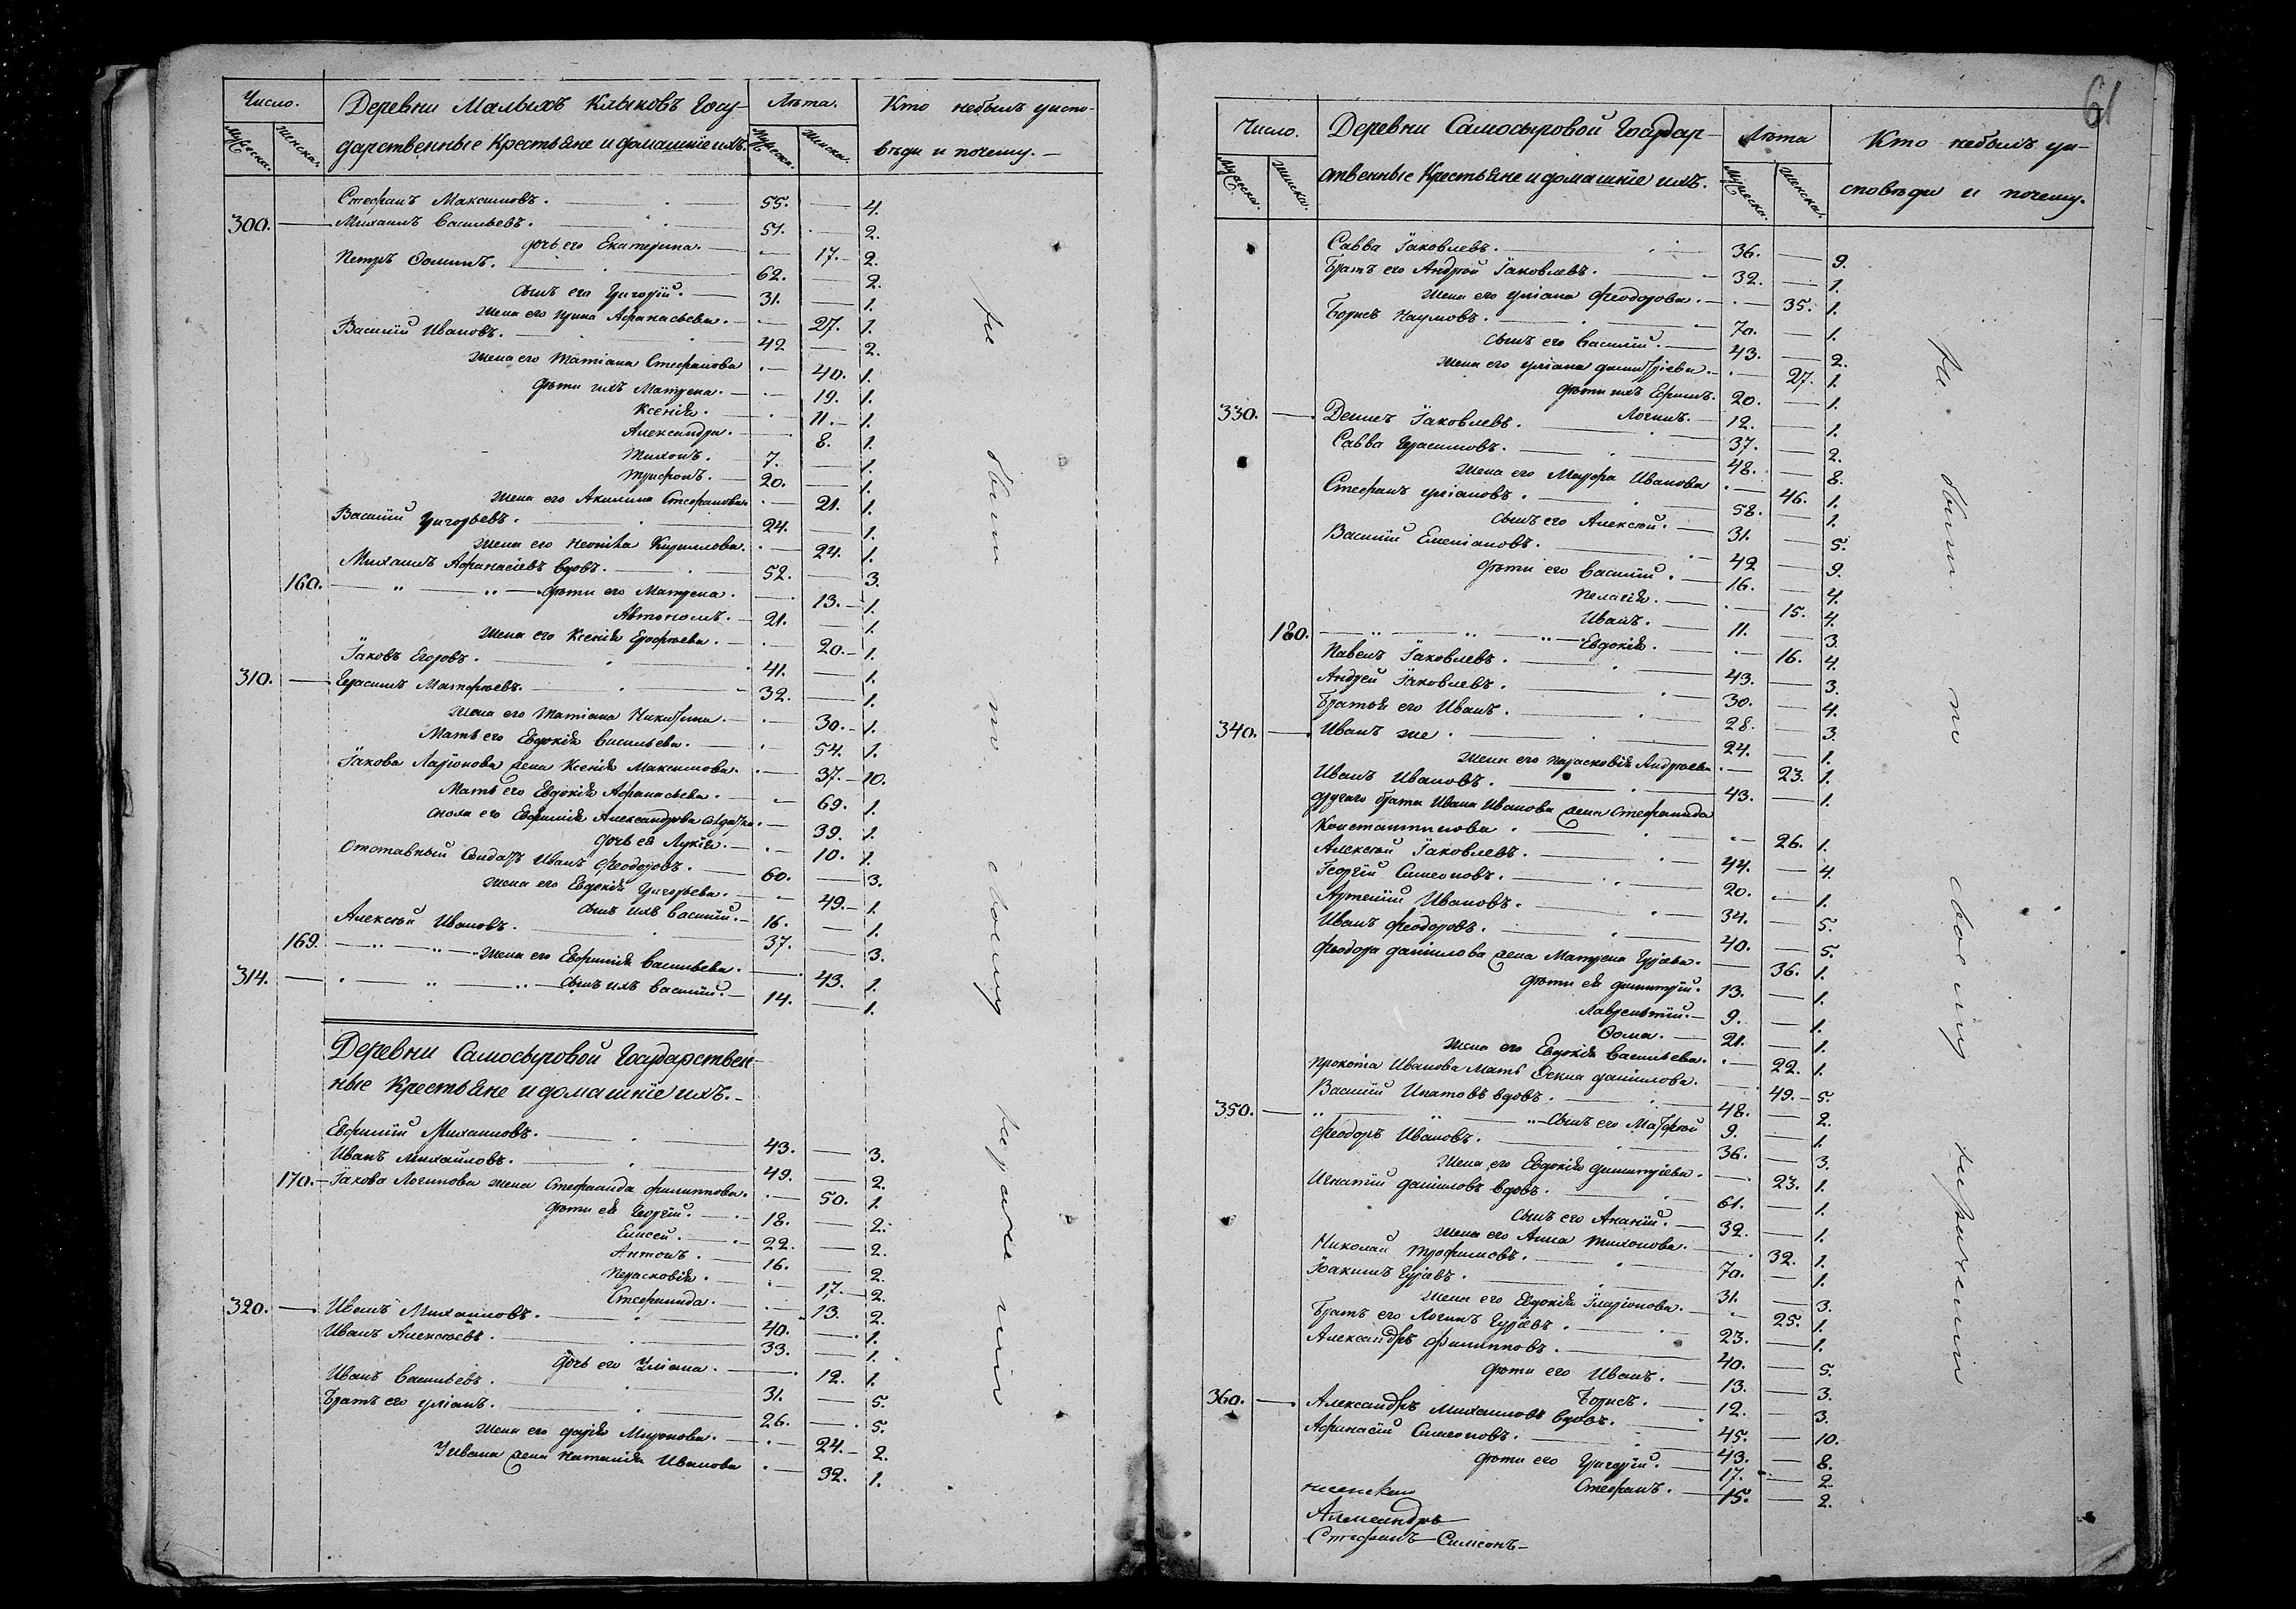 Число.
Деревни Малыхъ Клыковъ Госу-
Лѣта.
Кто небылъ уиспо-
Мужеска.
Женска.
дарственные Крестьяне и домашніе ихъ.
Мужеска.
Женска.
вѣди и почему. —
Стефанъ Максимовъ. 55. 4.
300. Михаилъ Васильевъ. 51. 2.
дочь его Екатерина. 17. 2.
Петръ Ѳоминъ. 62. 2.
сынъ его Григорій. 31. 1.
жена его Ирина Афанасьева. 27. 1.
Василій Ивановъ. 42 2.
жена его Татіана Стефанова 40. 1.
дѣти ихъ Матрена. 19. 1.
Ксенія. 11. 1.
Александра. 8. 1.
Тихонъ. 7. 1.
Трифонъ. 20. 1.
жена его Акилина Стефанова 21. 1.
Василій Григорьевъ. 24. 1.
жена его Неонила Кириллова. 24. 1.
Михаилъ Афанасіевъ вдовъ. 52. 3.
160. " " дѣти его Матрена. 13. 1.
Автономъ. 21. 1.
жена его Ксенія Ерофеева. 20. 1.
Іаковъ Егоровъ. 41. 1.
310. Герасимъ Матфеевъ. 32. 1.
жена его Татіана Никитина. 30. 1.
Мать его Евдокія Васильева. 54. 1.
Іакова Ларіонова жена Ксенія Максимова. 37. 10.
Мать его Евдокія Афанасьева. 69. 1.
сноха его Евфимія Александрова солдатка. 39. 1.
дочь ея Лукія. 10. 1.
Отставный Солдатъ Иванъ Феодоровъ. 60. 3.
жена его Евдокія Григорьева. 49. 1.
сынъ ихъ Василій. 16. 1.
Алексѣй Ивановъ. 37. 3.
169. " " жена его Евфимія Васильева. 43. 1.
314. " " сынъ ихъ Василій. 14. 1.
Деревни Самосыровой Государствен-
ные Крестьяне и домашніе ихъ. -
Евфимій Михаиловъ. 43. 3.
Иванъ Михайловъ. 49. 2.
170. Іакова Логинова жена Стефанида Филиппова. 50. 1.
дѣти ея Георгій. 18. 2.
Елисей. 22. 2.
Антонъ. 16. 2.
Парасковія. 17. 2.
Стефанида. 13. 2.
320. Иванъ Михаиловъ. 40. 1.
Иванъ Алексѣевъ. 33. 1.
дочь его Уліана. 12. 1.
Иванъ Васильевъ. 31. 5.
Братъ его Уліанъ. 26. 5.
жена его Дарія Миронова. 24. 2.
У Ивана жена Наталія Ивановa 32. 1.
не были по своему нераченію
61
Число.
Деревни Самосыровой Государ-
Лѣта
Кто небылъ уи-
Мужеска.
Женска.
ственные Крестьяне и домашніе ихъ.
Мужеска.
Женска.
сповѣди и почему.
Савва Іаковлевъ. 36. 9.
Братъ его Андрей Іаковлевъ. 32. 1.
жена его Уліана Феодорова. 35. 1.
Борисъ Наумовъ. 70. 1.
сынъ его Василій. 43. 2.
жена его Уліана Димитріева. 27. 1.
дѣти ихъ Ефимъ. 20. 1.
Логинъ. 12. 1.
330. Денисъ Іаковлевъ. 37. 2.
Савва Герасимовъ. 48. 8.
жена его Мавра Иванова 46. 1.
Стефанъ Уліановъ. 58. 1.
сынъ его Алексѣй. 31. 5.
Василій Емеліановъ. 42 9.
дѣти его Василій. 16. 4.
Пелагія. 15. 4.
Иванъ. 11. 3.
180. " " " Евдокія. 16. 4.
Павелъ Іаковлевъ. 43. 3.
Андрей Іаковлевъ. 30. 4.
Братья его Иванъ. 28. 3.
340. Иванъ же. 24. 1.
жена его Парасковія Андреева 23. 1.
Иванъ Ивановъ. 43. 1.
другаго брата Ивана Иванова жена Стефанида
Константинова. 26. 1.
Алексѣй Іаковлевъ. 44. 4.
Георгій Симеоновъ. 20. 1.
Артемій Ивановъ. 34. 5.
Иванъ Феодоровъ. 40. 5.
Феодора Данилова жена Матрена Гурьева. 36. 1.
дѣти ея Димитрій. 13. 1.
Лаврентій. 9. 1.
Ѳома. 21. 1.
жена его Евдокія Васильева. 22. 1.
Прокопа Иванова Мать Оскиа Данилова. 49. 5.
Василій Ипатовъ вдовъ. 48. 2.
350. " " " сынъ его Матфей 9. 1.
Феодоръ Ивановъ. 36. 3.
жена его Евдокія Димитріева. 23. 1.
Игнатій Даниловъ вдовъ. 61. 1.
сынъ его Ананій. 32. 1.
жена его Анна Тихонова. 32. 1.
Николай Трофимовъ. 70. 1.
Іоакимъ Гурьевъ. 31. 3.
жена его Евдокія Иларіонова. 25. 1.
Братъ его Логинъ Гурьевъ. 23. 1.
Александръ Филипповъ. 40. 5.
дѣти его Иванъ. 13. 3.
Борисъ. 12. 3.
360. Александръ Михаиловъ вдовъ. 45. 10.
Афанасій Симеоновъ. 43. 8.
дѣти его Григорій. 17. 2.
Стефанъ. 15. 2.
Александръ
Стефанъ Симсонъ
не были по своему нераченію